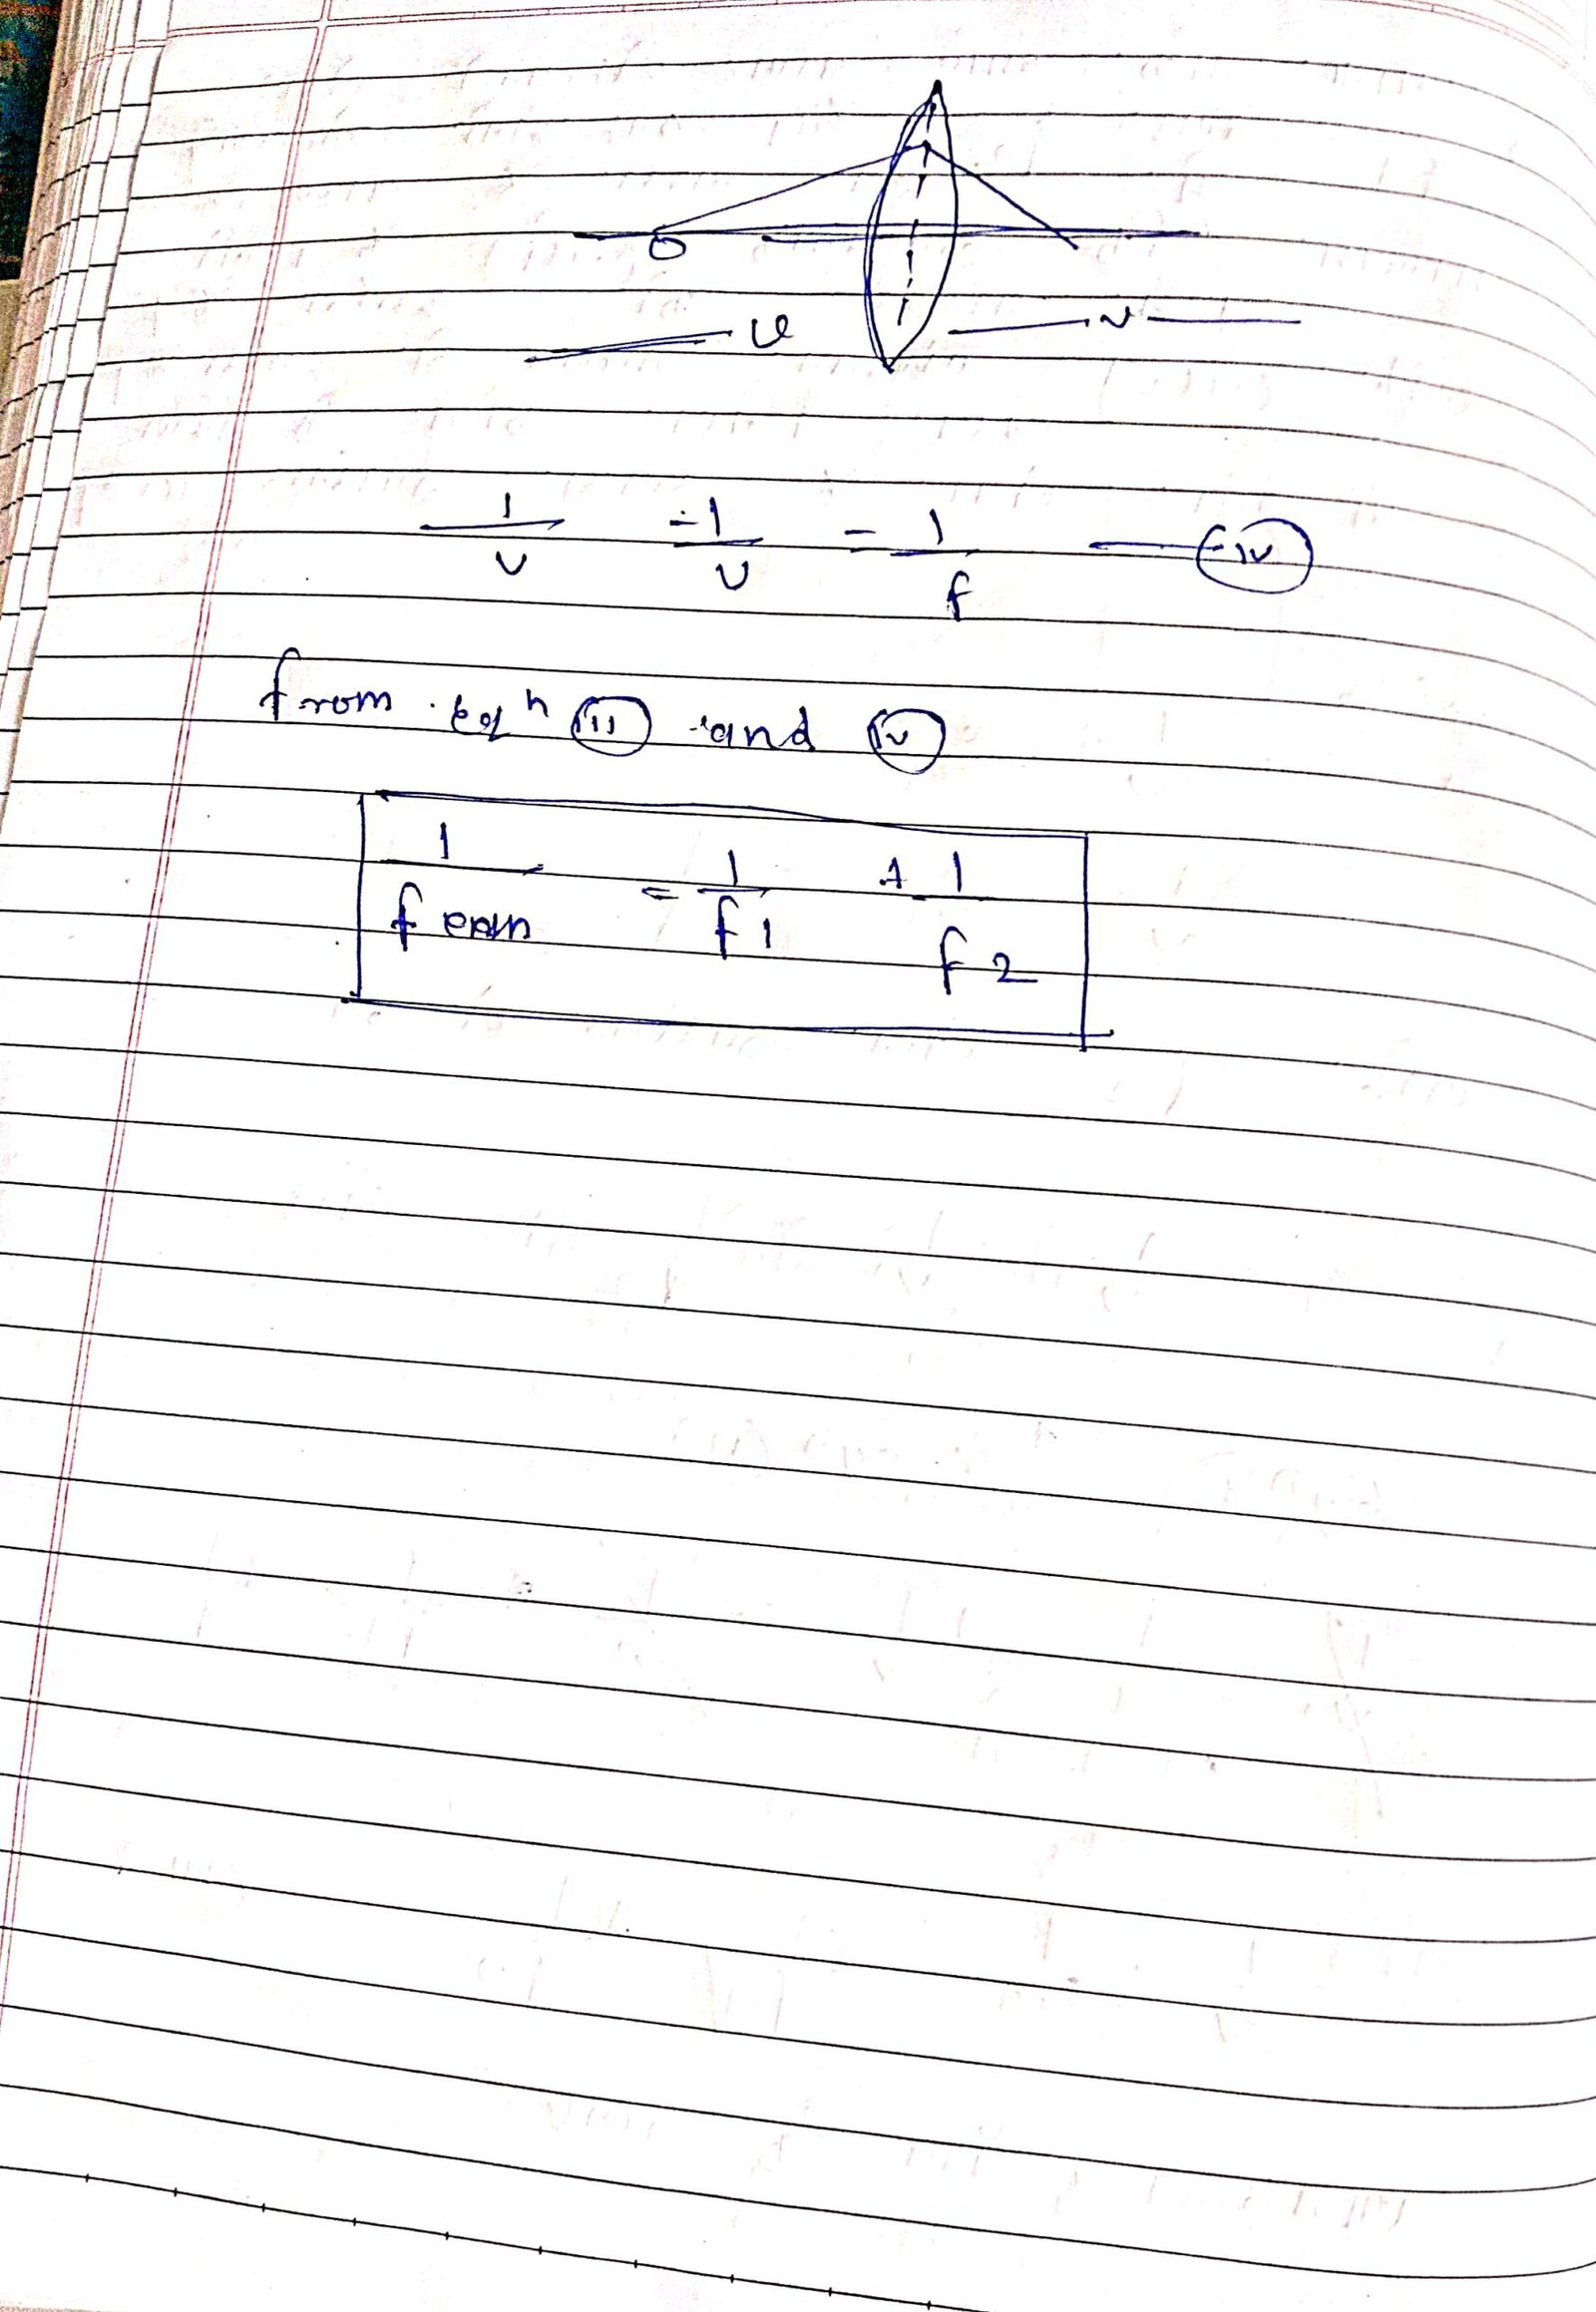 O
u v
1/v - 1/u = 1/f — (iv)
from eqn (iii) and (iv)
1/f = 1/f1 + 1/f2